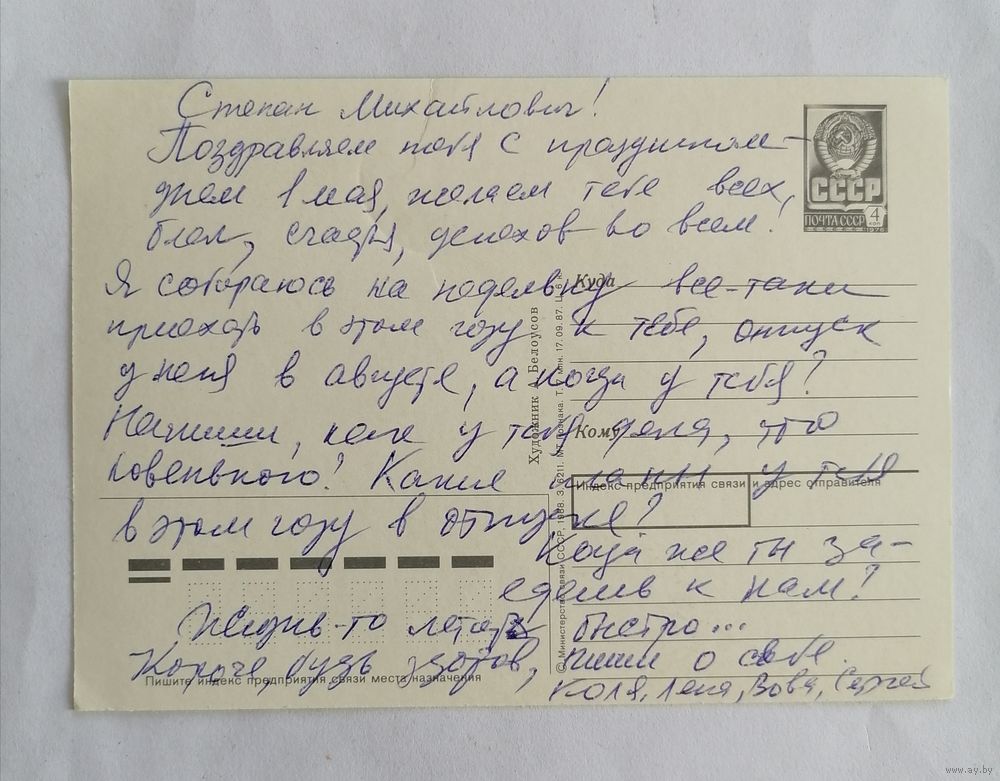 Степан Михайлович!
Поздравляем тебя с праздником –
днем 1 мая, желаем тебе всех
благ, счастья, успехов во всем!
Я собираюсь на недельку все-таки
приехать в этом году к тебе, отпуск
у меня в августе, а когда у тебя?
Напиши, как у тебя дела, что
новенького? Какие планы у тебя
в этом году в отпуске?
Когда же ты за-
едешь к нам?
Жизнь-то летит быстро...
Короче, будь здоров, пиши о себе.
Коля, Лена, Вова, Сергей
СССР
ПОЧТА СССР 4 КОП
1976
Куда
Кому
Индекс предприятия связи и адрес отправителя
Художник А. Белоусов
© Министерство связи СССР, 1988. З. 6211. МТ Гознака. 17.09.87.
Пишите индекс предприятия связи места назначения
www.ay.by